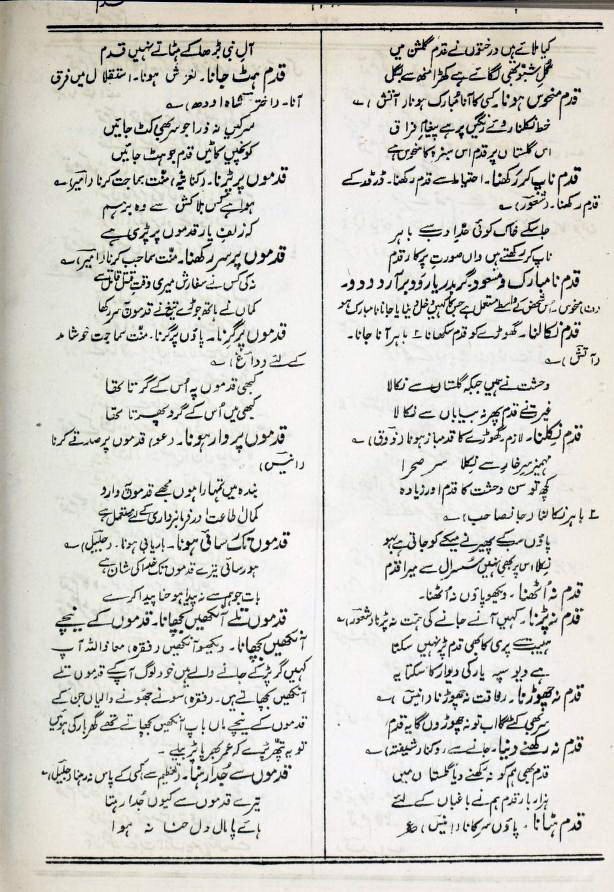 قدم
کیا ملاتے ہیں درختوں نے قدم گلشن میں
گل شبو بھی لگاتے ہے کھڑا منھ سے بگل
قدم منحوس ہونا۔ کسی کا آنا نامبارک ہونا (آتش) ؎
خط نکلنا روئے رنگیں پر ہے پیغام فراق
اس گلستاں پر قدم اس سبزہ کا منحوس ہے
قدم ناپ کر رکھنا۔ احتیاط سے قدم رکھنا۔ ڈر ڈر کے
قدم رکھنا۔ (شعور) ؎
جاسکے خاک کوئی حد ادب سے باہر
ناپ کر رکھتے ہیں واں صورت پرکار قدم
قدم نامبارک و مسعود۔ گر بدریا رود برآرد دود۔
(ف) منحوس۔ اُس شخص کے واسطے مستعمل ہے جس کا کہیں جانا نامبارک ہو
قدم نکالنا۔ گھوڑے کو قدم سکھانا ۲ باہر آنا جانا۔
(آتش) ؎
وحشت نے ہمیں جبکہ گلستاں سے نکالا
غیرت نے قدم پھر نہ بیاباں سے نکالا
قدم نکلنا۔ لازم۔ گھوڑے کا قدمباز ہونا (ذوق) ؎
مہمیز سر خار سے نکلا سر صحرا
کچھ توسن وحشت کا قدم اور زیادہ
۲ باہر نکالنا (جانصاحب) ؎
پاؤں سکے پھیرنے میکے کو جاتی ہے ہو
نکلا اس پر بھی نہیں سسرال سے میرا قدم
قدم نہ اُٹھنا۔ دیکھو پاؤں نہ اٹھنا۔
قدم نہ پڑنا۔ کہیں آنے جانے کی ہمت نہ پڑنا (شعور) ؎
ہیبت سے پری کا بھی قدم پڑ نہیں سکتا
ہے دیو سیہ یار کی دیوار کا سایہ
قدم نہ چھوڑنا۔ رفاقت نہ چھوڑنا (انیس) ؎
سر بھی کٹے گا اب تو نہ چھوڑوں گا یہ قدم
قدم نہ رکھنے دینا۔ جانے سے روکنا (شیفتہ) ؎
قدم بھی ہم کو نہ رکھنے دیا گلستاں میں
ہزار بار قدم ہم نے باغباں کے لئے
قدم ہٹانا۔ پاؤں سرکانا (انیس) ع
آل نبی بڑھا کے ہٹاتے نہیں قدم
قدم ہٹ جانا۔ لغزش ہونا۔ استقلال میں فرق
آنا۔ (اختر شاہ اودھ) ؎
سرکیں نہ ذرا جو سر بھی کٹ جائیں
کونچیں کاٹیں قدم جو ہٹ جائیں
قدموں پر پڑنا۔ منت سماجت کرنا (امیر) ؎
ہوا ہے کس تلاش سے وہ برہم
کہ زلف یار قدموں پر پڑی ہے
قدموں پر سر رکھنا۔ منت سماجت کرنا (امیر) ؎
نہ کی کس نے سفارش میری وقت قتل قاتل سے
کماں نے ہاتھ جوڑے تیغ نے قدموں پہ سر رکھا
قدموں پر گرنا۔ پاؤں پر گرنا۔ منت سماجت خوشامد
کے لئے (داغ) ؎
کبھی قدموں پہ اُس کے گرتا تھا
کبھی میں اُس کے گرد پھرتا تھا
قدموں پر وار ہونا۔ (عو) قدموں پر صدقے کرنا
(انیس)
بندہ میں تمہارا ہوں مجھے قدموں پہ وارو
کمال طاعت اور فرمانبرداری کے لئے مستعمل ہے
قدموں تک رسائی ہونا۔ باریابی ہونا۔ (جلیل) ؎
ہو رسائی تیرے قدموں تک خدا کی شان ہے
بات جو ہم سے نہ پیدا ہو حنا پیدا کرے
قدموں تلے آنکھیں بچھانا۔ قدموں کے نیچے
آنکھیں بچھانا۔ دیکھو آنکھیں (فقرہ) معاذ اللہ آپ
کہیں گر پڑ کے جانے والے ہیں خود لوگ آپ کے قدموں تلے
آنکھیں بچھاتے ہیں۔ (فقرہ) سونے جھونے والیاں جن کے
قدموں کے نیچے ماں باپ آنکھیں بچھاتے تھے گھر بار کی ہوئیں
تو یہ پتھر پڑے کہ عمر بھر پاپڑ بیلے۔
قدموں سے جدا رہنا۔ (تعظیم سے) کسی کے پاس نہ رہنا (جلیل) ؎
تیرے قدموں سے کیوں جدا رہتا
ہائے پامال دل حنا نہ ہوا